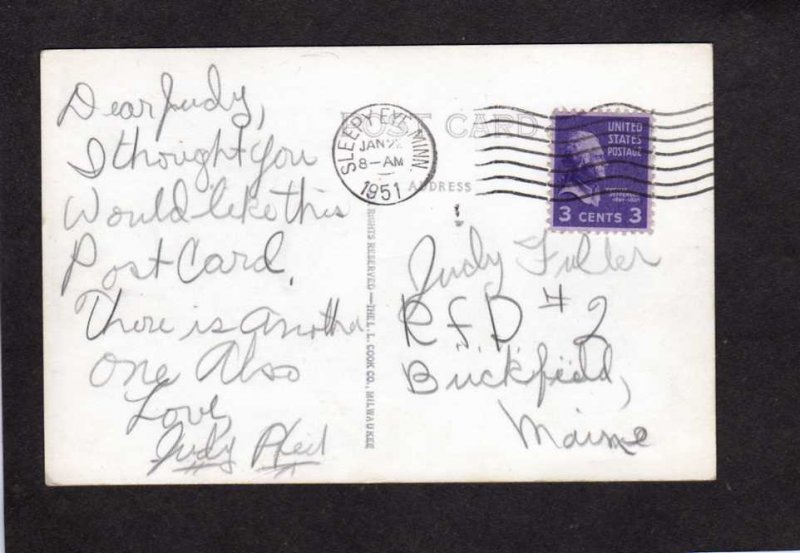 Dear Judy,
I thought you
Would like this
Post Card.
There is another
one Also
Love
Judy
POST CARD
ADDRESS
SLEEPY EYE MINN
JAN
8-AM
1951
UNITED
STATES
POSTAGE
JEFFERSON
3 CENTS 3
RIGHTS RESERVED—THE L. L. COOK CO., MILWAUKEE
Judy Fuller
RFD #2
Buckfield,
Maine